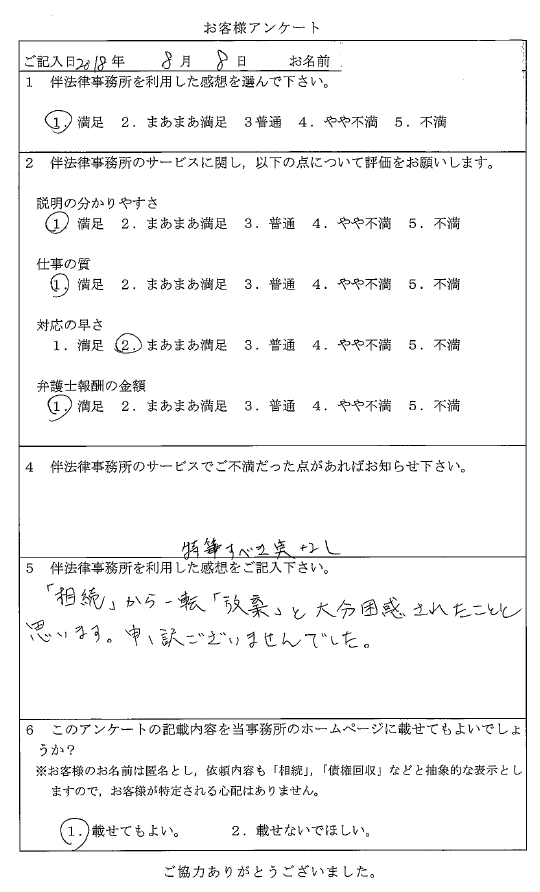 お客様アンケート
ご記入日2018年 8月 8日 お名前
1 伴法律事務所を利用した感想を選んで下さい。
1. 満足 2. まあまあ満足 3普通 4. やや不満 5. 不満
2 伴法律事務所のサービスに関し,以下の点について評価をお願いします。
説明の分かりやすさ
1. 満足 2. まあまあ満足 3. 普通 4. やや不満 5. 不満
仕事の質
1. 満足 2. まあまあ満足 3. 普通 4. やや不満 5. 不満
対応の早さ
1. 満足 2. まあまあ満足 3. 普通 4. やや不満 5. 不満
弁護士報酬の金額
1. 満足 2. まあまあ満足 3. 普通 4. やや不満 5. 不満
4 伴法律事務所のサービスでご不満だった点があればお知らせ下さい。
特筆すべき点なし
5 伴法律事務所を利用した感想をご記入下さい。
「相続」から一転「放棄」と大分困惑されたことと
思います。申し訳ございませんでした。
6 このアンケートの記載内容を当事務所のホームページに載せてもよいでしょ
うか?
※お客様のお名前は匿名とし,依頼内容も「相続」,「債権回収」などと抽象的な表示とし
ますので,お客様が特定される心配はありません。
1. 載せてもよい。 2. 載せないでほしい。
ご協力ありがとうございました。